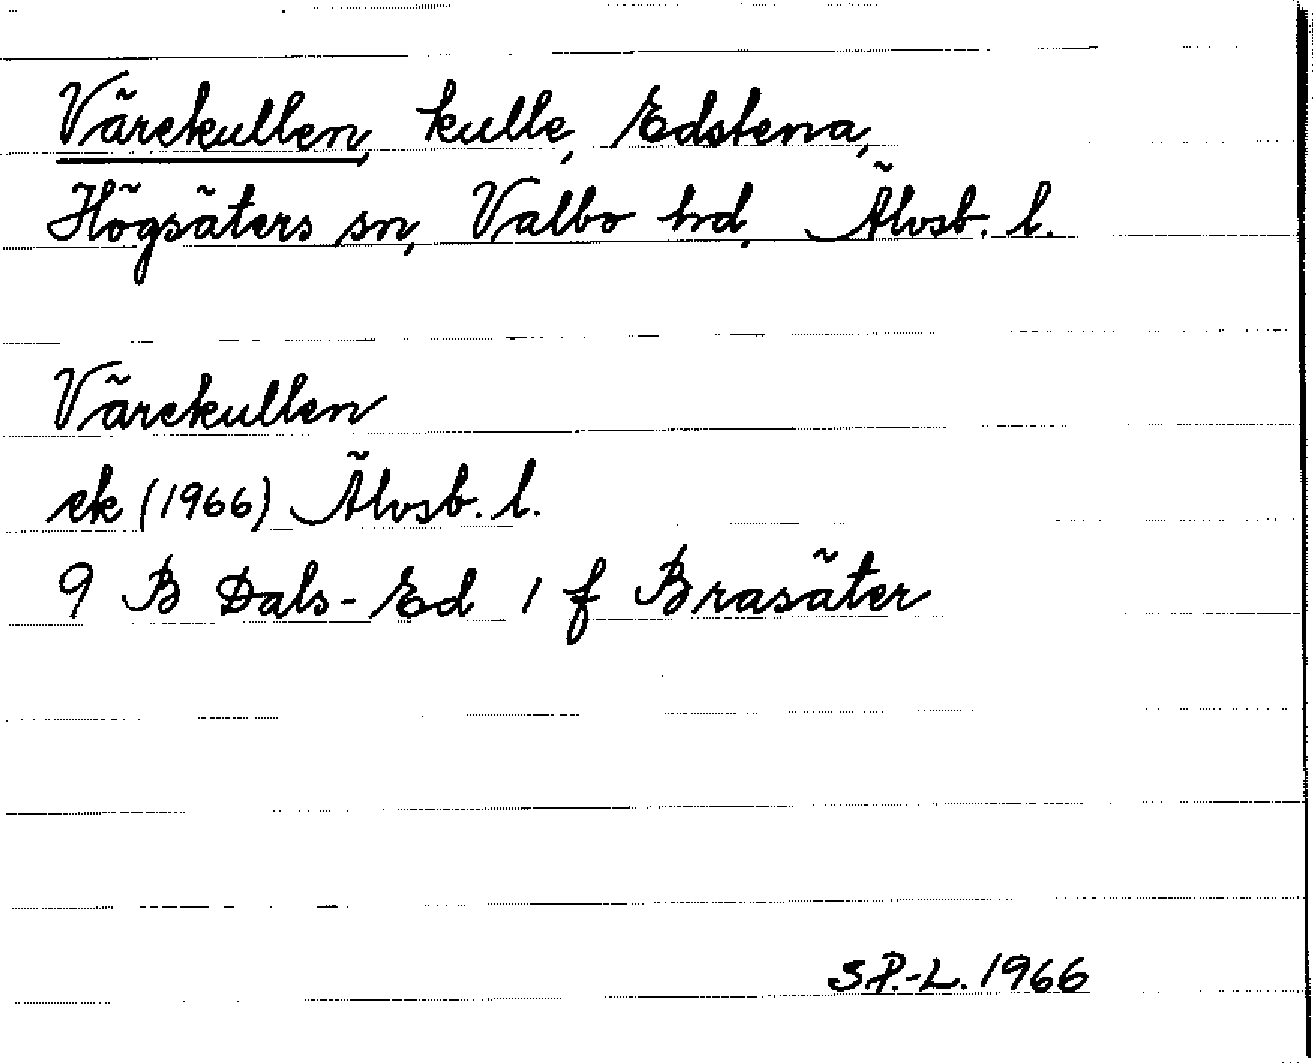 Värekullen, kulle, Edstena,
Högsäters sn, Valbo hd, Älvsb. l.
Värekullen
ek (1966) Älvsb. l.
9 B Dals-Ed 1 f Brasäter
S.P.-L. 1966